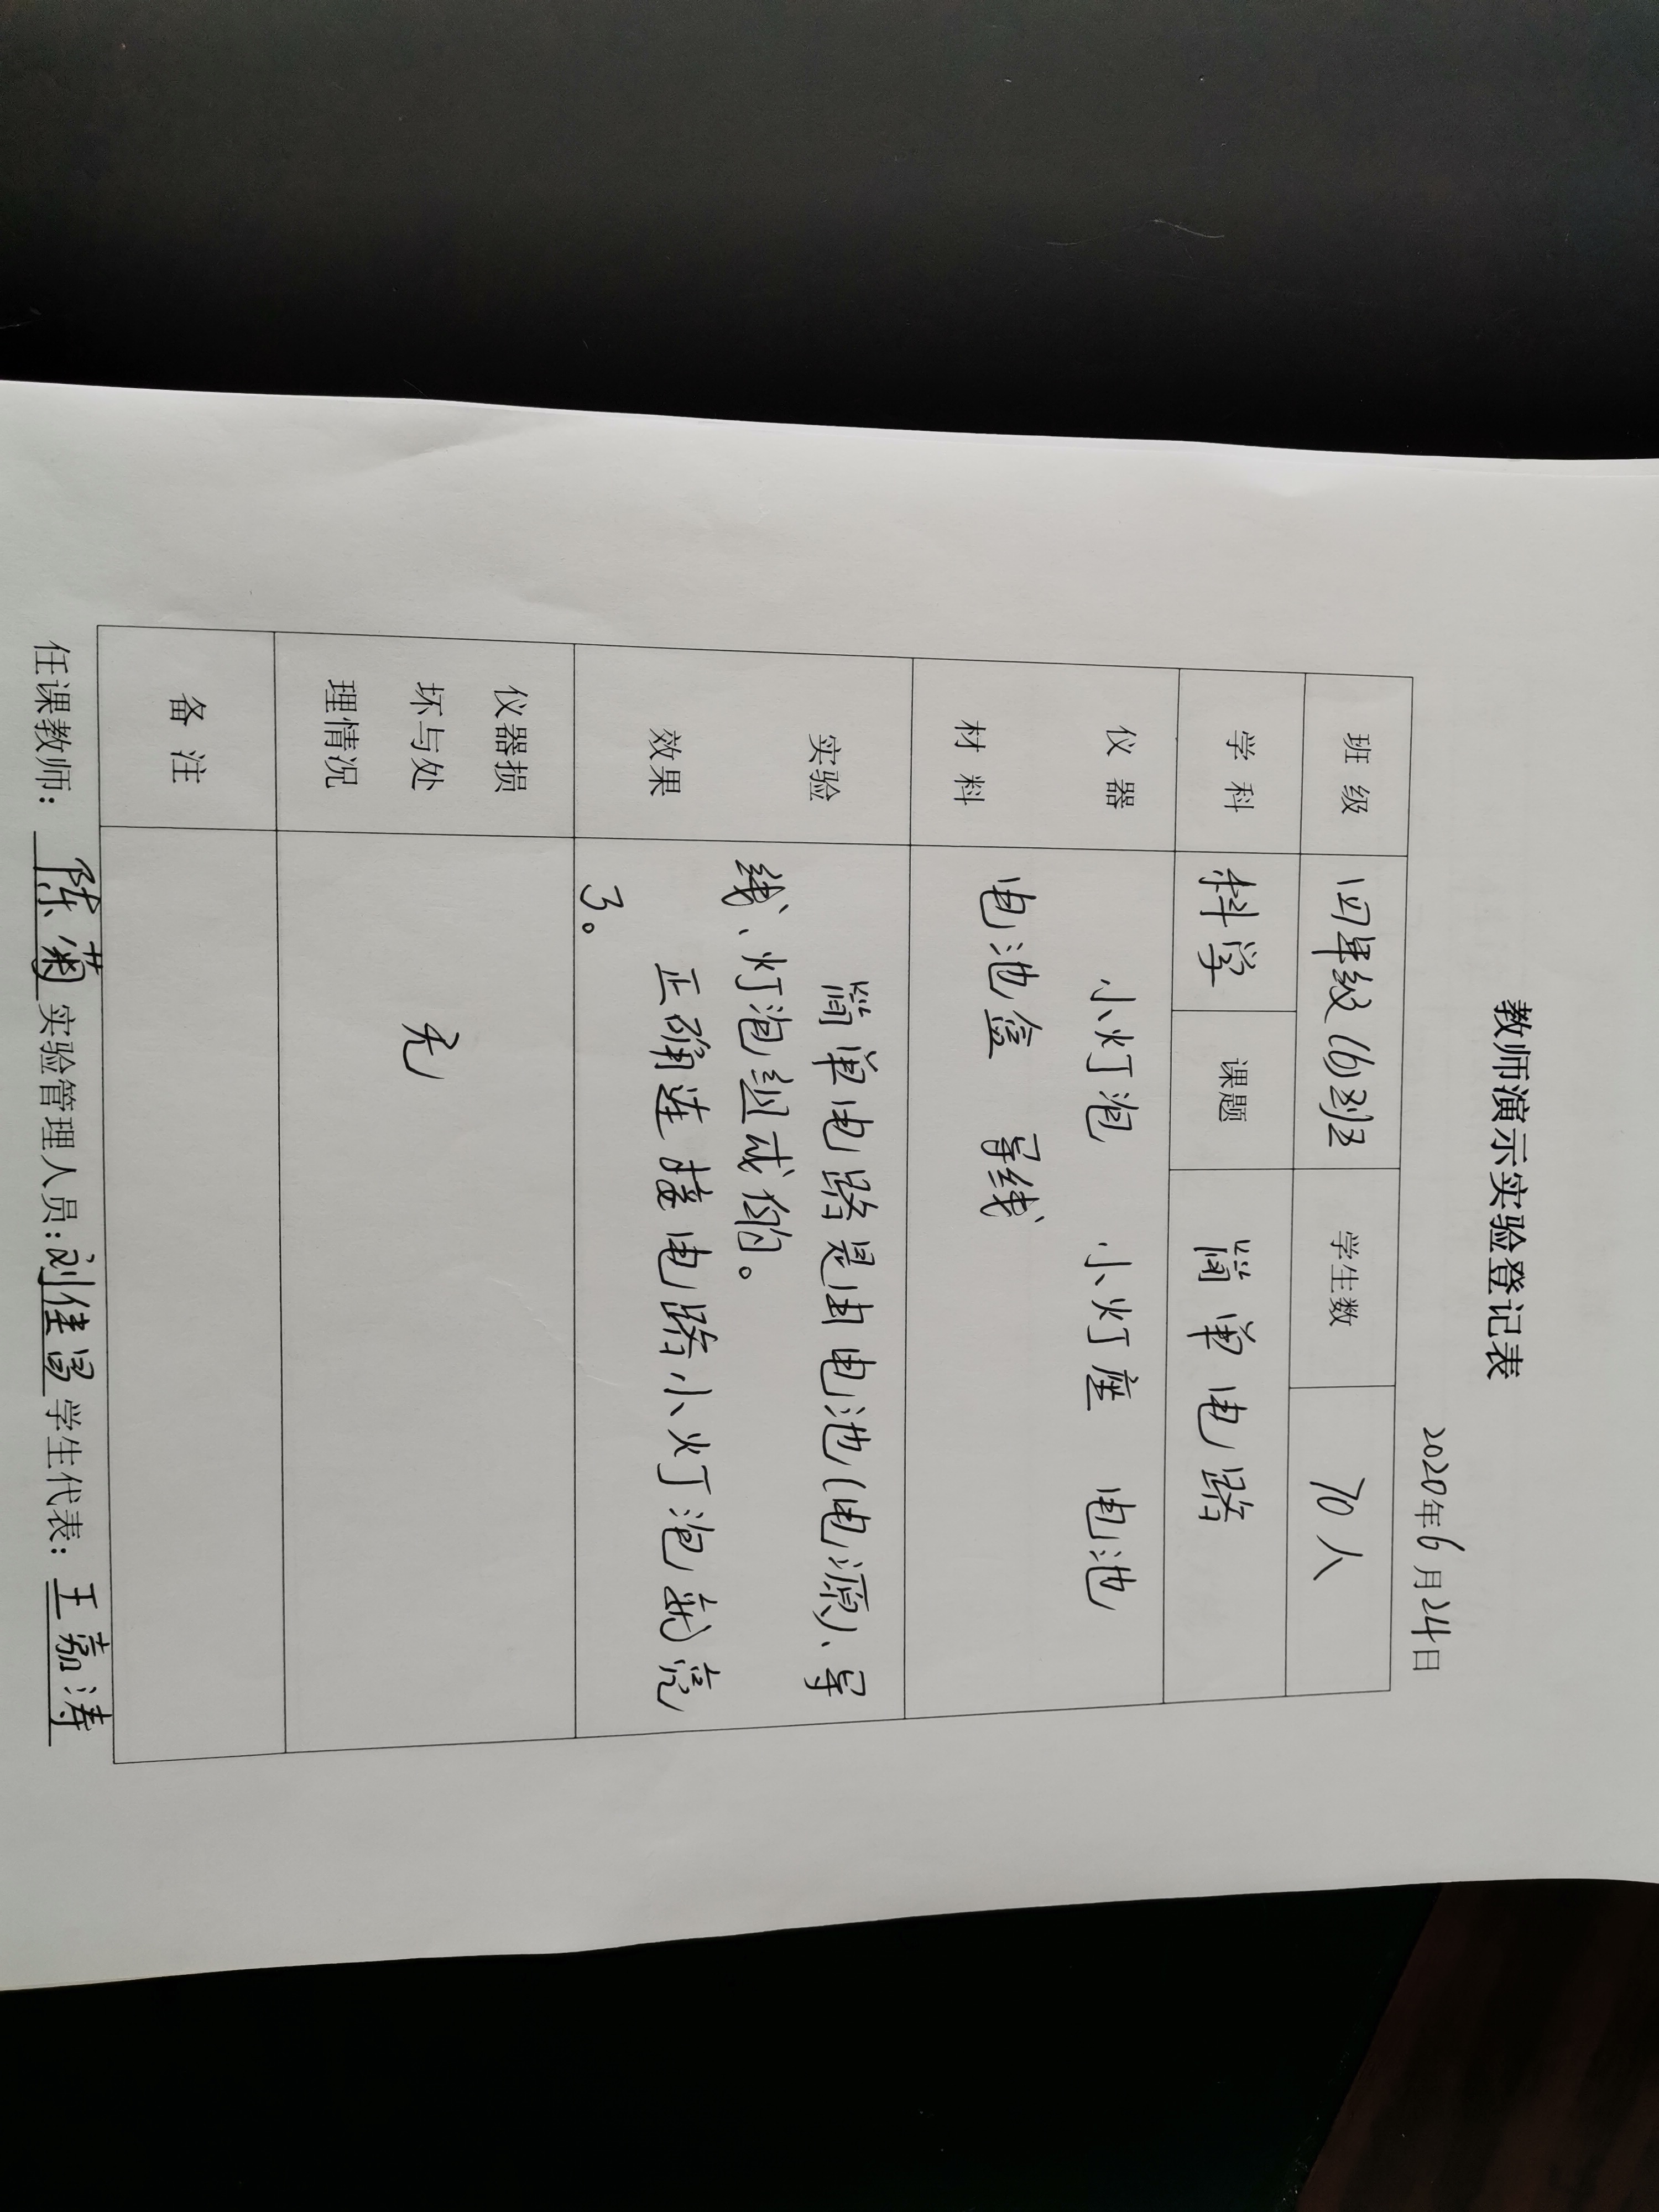 教师演示实验登记表
2020年6月24日
班 级 四年级(6)班 学生数 70人
学 科 科学 课题 简单电路
仪 器 小灯泡 小灯座 电池
材 料 电池盒 导线
实验 简单电路是由电池(电源)、导
线、灯泡组成的。
效果 正确连接电路小灯泡就亮
了。
仪器损
坏与处 无
理情况
备 注
任课教师: 陈菊 实验管理人员: 刘佳 学生代表: 王嘉涛